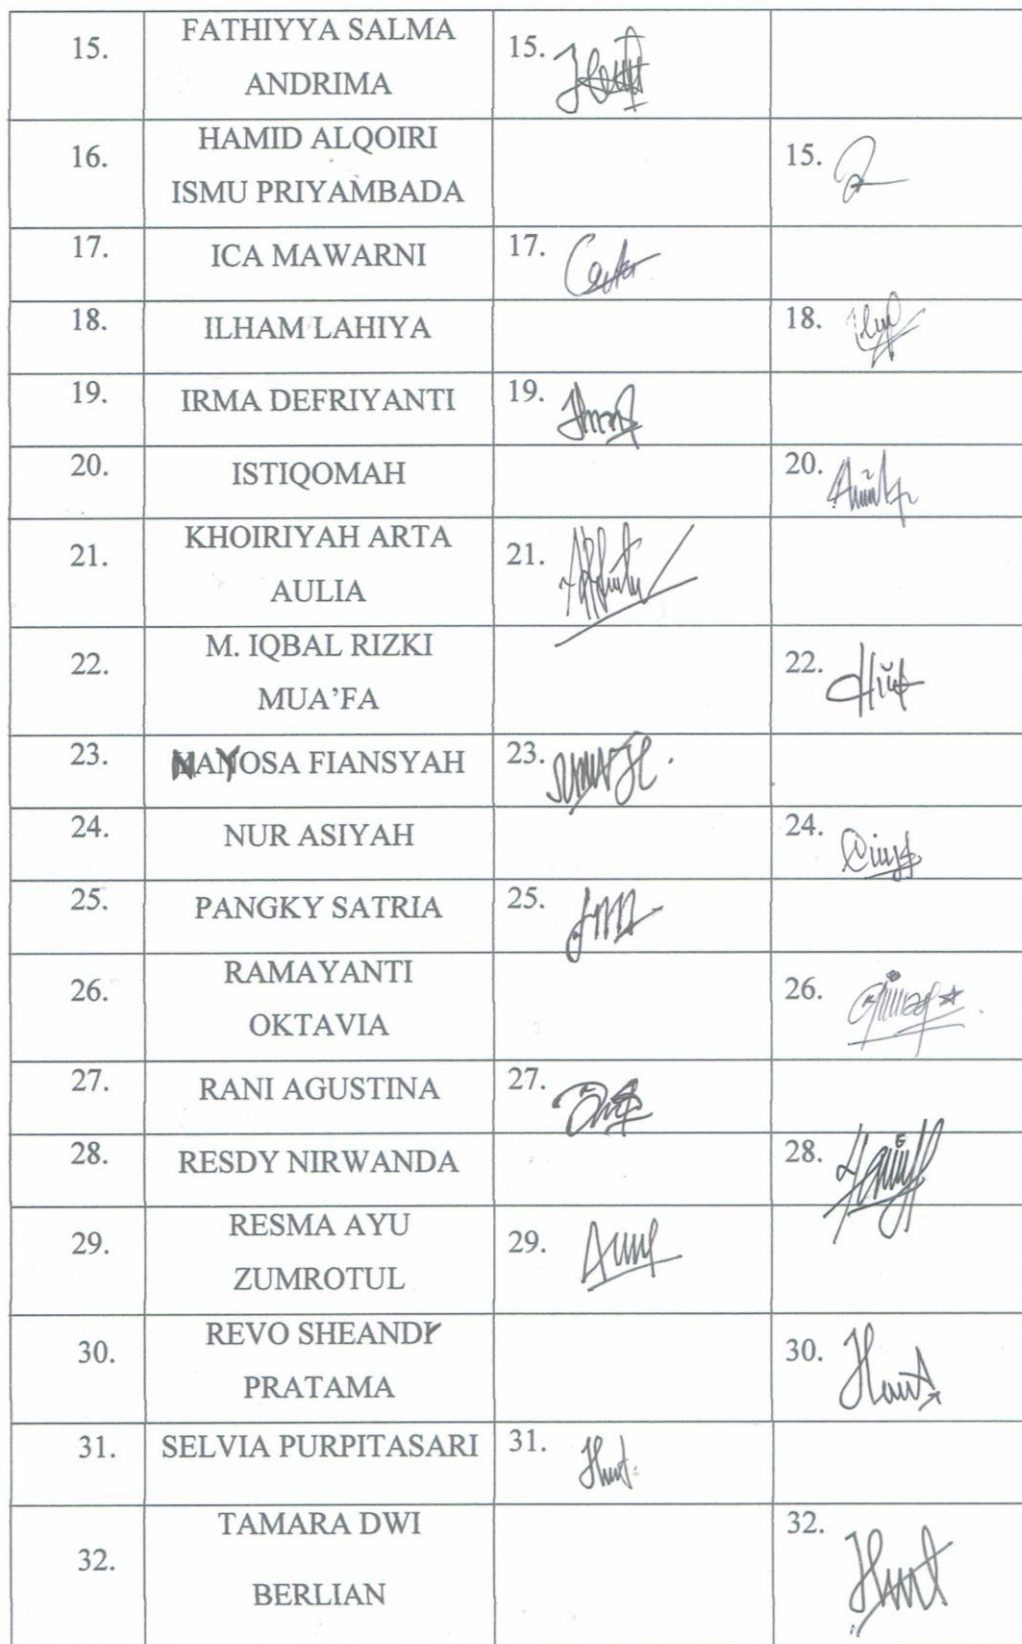 15. FATHIYYA SALMA 15.
ANDRIMA
16. HAMID ALQOIRI 15.
ISMU PRIYAMBADA
17. ICA MAWARNI 17.
18. ILHAM LAHIYA 18.
19. IRMA DEFRIYANTI 19.
20. ISTIQOMAH 20.
21. KHOIRIYAH ARTA 21.
AULIA
22. M. IQBAL RIZKI 22.
MUA’FA
23. NAYOSA FIANSYAH 23.
24. NUR ASIYAH 24.
25. PANGKY SATRIA 25.
26. RAMAYANTI 26.
OKTAVIA
27. RANI AGUSTINA 27.
28. RESDY NIRWANDA 28.
29. RESMA AYU 29.
ZUMROTUL
30. REVO SHEANDY 30.
PRATAMA
31. SELVIA PURPITASARI 31.
32. TAMARA DWI 32.
BERLIAN